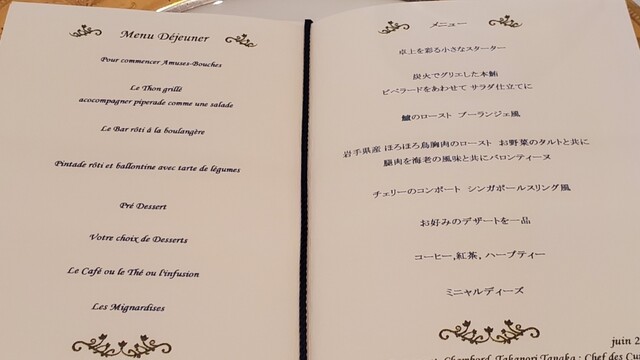 Menu Déjeuner
Pour commencer Amuses-Bouches
Le Thon grillé
acocompagner piperade comme une salade
Le Bar rôti à la boulangère
Pintade rôti et ballontine avec tarte de légumes
Pré Dessert
Votre choix de Desserts
Le Café ou le Thé ou l'infusion
Les Mignardises
メニュー
卓上を彩る小さなスターター
炭火でグリエした本鮪
ピペラードをあわせて サラダ仕立てに
鱸のロースト ブーランジェ風
岩手県産 ほろほろ鳥胸肉のロースト お野菜のタルトと共に
腿肉を海老の風味と共にバロンティーヌ
チェリーのコンポート シンガポールスリング風
お好みのデザートを一品
コーヒー,紅茶, ハーブティー
ミニャルディーズ
juin 2
Chambord Takanori Tanaka : Chef des Cu